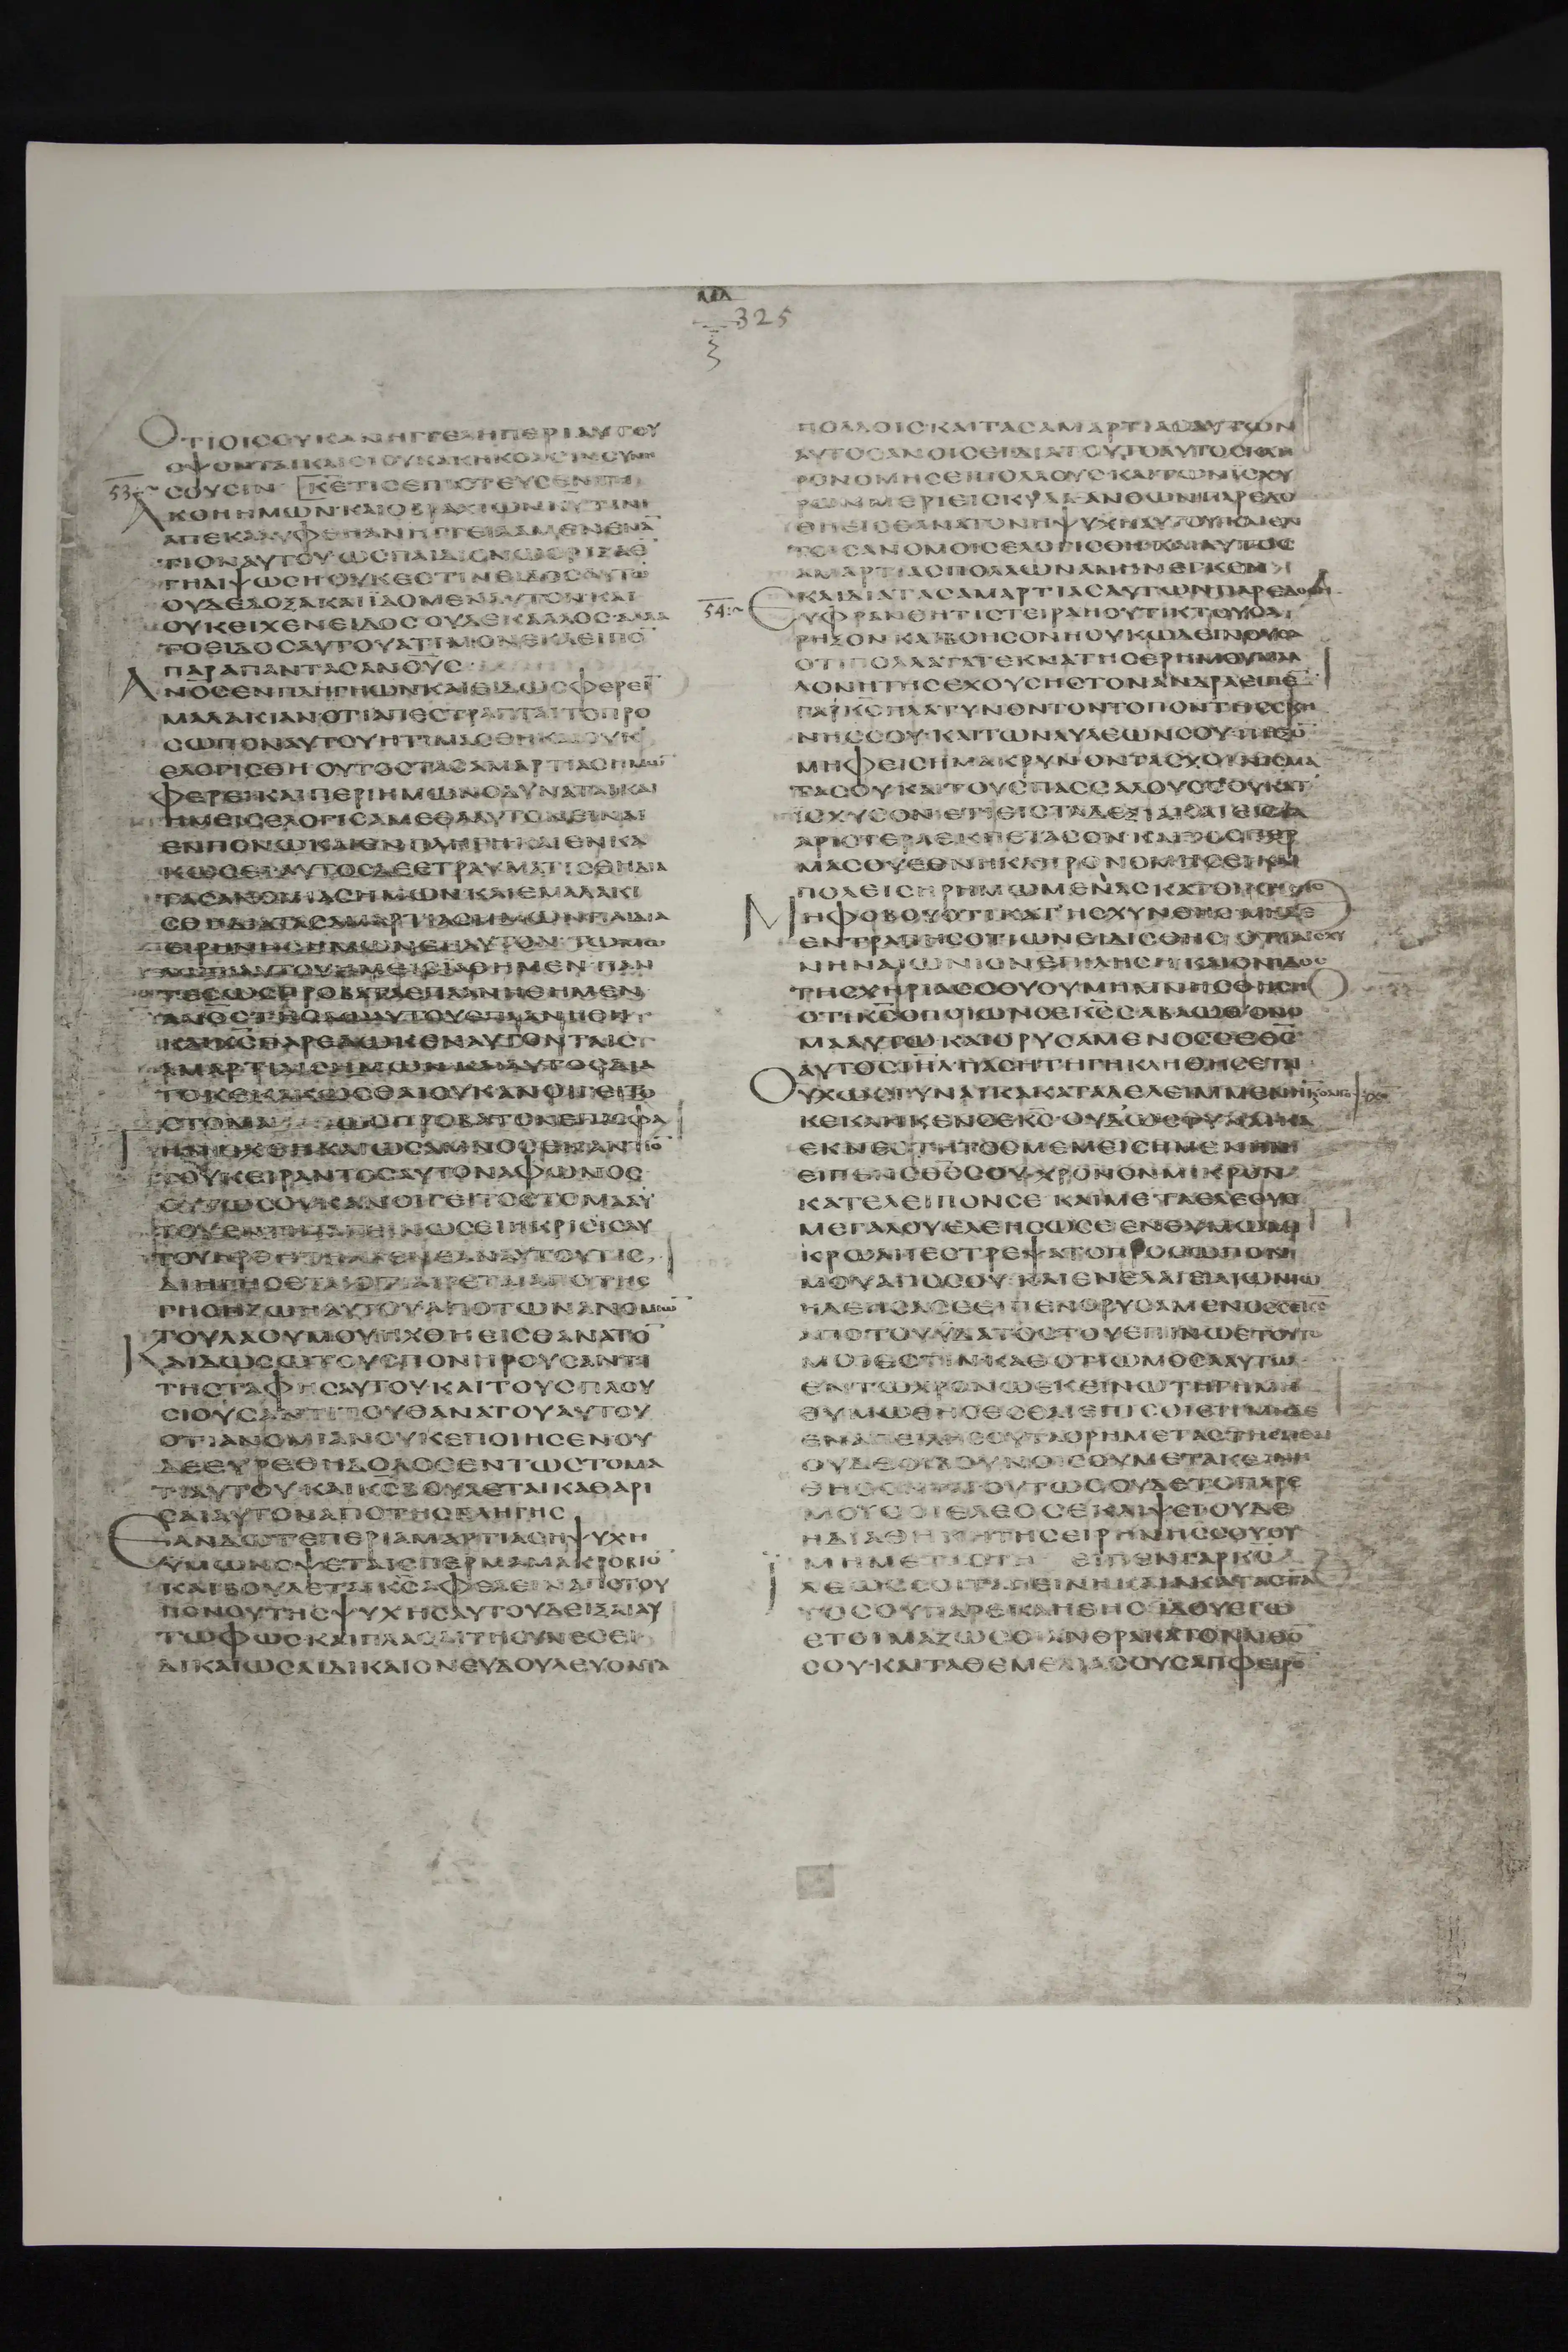 325
ΟΤΙΟΙCΟΥΚΑΝΗΓΓΕΛΗΠΕΡΙΑΥΤΟΥ
ΟΨΟΝΤΑΙΚΑΙΟΙΟΥΚΑΚΗΚΟΑCΙΝCΥΝΗ
53
CΟΥCΙΝ ΚΕΤΙCΕΠΙCΤΕΥCΕΝΤΗ
ΑΚΟΗΗΜΩΝΚΑΙΟΒΡΑΧΙΩΝΚΥΤΙΝΙ
ΑΠΕΚΑΛΥΦΘΕΠΑΝΗΓΓΕΙΛΑΜΕΝΕΝΑ
ΤΙΟΝΑΥΤΟΥΩCΠΑΙΔΙΟΝΩCΡΙΖΑΕ
ΓΗΔΙΨΩCΗΟΥΚΕCΤΙΝΕΙΔΟCΑΥΤΩ
ΟΥΔΕΔΟΞΑΚΑΙΪΔΟΜΕΝΑΥΤΟΝΚΑΙ
ΟΥΚΕΙΧΕΝΕΙΔΟCΟΥΔΕΚΑΛΛΟCΑΛΛΑ
ΤΟΕΙΔΟCΑΥΤΟΥΑΤΙΜΟΝΕΚΛΕΙΠΟ
ΠΑΡΑΠΑΝΤΑCΑΝΟΥC
ΑΝΟCΕΝΠΛΗΓΗΩΝΚΑΙΕΙΔΩCΦΕΡΕΙ
ΜΑΛΑΚΙΑΝΟΤΙΑΠΕCΤΡΑΠΤΑΙΤΟΠΡΟ
CΩΠΟΝΑΥΤΟΥΗΤΙΜΑCΘΗΚΑΙΟΥΚ
ΕΛΟΓΙCΘΗΟΥΤΟCΤΑCΑΜΑΡΤΙΑCΗΜΩ
ΦΕΡΕΙΚΑΙΠΕΡΙΗΜΩΝΟΔΥΝΑΤΑΙΚΑΙ
ΗΜΕΙCΕΛΟΓΙCΑΜΕΘΑΑΥΤΟΝΕΙΝΑΙ
ΕΝΠΟΝΩΚΑΙΕΝΠΛΗΓΗΚΑΙΕΝΚΑ
ΚΩCΕΙΑΥΤΟCΔΕΕΤΡΑΥΜΑΤΙCΘΗΔΙΑ
ΤΑCΑΝΟΜΙΑCΗΜΩΝΚΑΙΕΜΑΛΑΚΙ
CΘΗΔΙΑΤΑCΑΜΑΡΤΙΑCΗΜΩΝΠΑΙΔΙΑ
ΕΙΡΗΝΗCΗΜΩΝΕΠΑΥΤΟΝΤΩΜΩ
ΤΕCΩCΠΡΟΒΑΤΑΕΠΛΑΝΗΘΗΜΕΝ
ΑΝΟCΤΗΟΔΩΑΥΤΟΥΕΠΛΑΝΗΘΗ
ΚΑΙΚCΠΑΡΕΔΩΚΕΝΑΥΤΟΝΤΑΙC
ΑΜΑΡΤΙΑΙCΗΜΩΝΚΑΙΑΥΤΟCΔΙΑ
ΤΟΚΕΚΑΚΩCΘΑΙΟΥΚΑΝΟΙΓΕΙΤΟ
CΤΟΜΑ ΩCΠΡΟΒΑΤΟΝΕΠΙCΦΑ
ΓΗΝΗΧΘΗΚΑΙΩCΑΜΝΟCΕΝΑΝΤΙΟ
ΤΟΥΚΕΙΡΑΝΤΟCΑΥΤΟΝΑΦΩΝΟC
ΟΥΤΩCΟΥΚΑΝΟΙΓΕΙΤΟCΤΟΜΑΑΥ
ΤΟΥΕΝΤΗΤΑΠΕΙΝΩCΕΙΗΚΡΙCΙCΑΥ
ΤΟΥΗΡΘΗΤΗΝΓΕΝΕΑΝΑΥΤΟΥΤΙC
ΔΙΗΓΗCΕΤΑΙΟΤΙΑΙΡΕΤΑΙΑΠΟΤΗC
ΓΗCΗΖΩΗΑΥΤΟΥΑΠΟΤΩΝΑΝΟΜΙΩ
ΤΟΥΛΑΟΥΜΟΥΗΧΘΗΕΙCΘΑΝΑΤΟ
ΚΑΙΔΩCΩΤΟΥCΠΟΝΗΡΟΥCΑΝΤΙ
ΤΗCΤΑΦΗCΑΥΤΟΥΚΑΙΤΟΥCΠΛΟΥ
CΙΟΥCΑΝΤΙΤΟΥΘΑΝΑΤΟΥΑΥΤΟΥ
ΟΤΙΑΝΟΜΙΑΝΟΥΚΕΠΟΙΗCΕΝΟΥ
ΔΕΕΥΡΕΘΗΔΟΛΟCΕΝΤΩCΤΟΜΑ
ΤΙΑΥΤΟΥΚΑΙΚCΒΟΥΛΕΤΑΙΚΑΘΑΡΙ
CΑΙΑΥΤΟΝΑΠΟΤΗCΠΛΗΓΗC
ΕΑΝΔΩΤΕΠΕΡΙΑΜΑΡΤΙΑCΗΨΥΧΗ
ΥΜΩΝΟΨΕΤΑΙCΠΕΡΜΑΜΑΚΡΟΒΙΟ
ΚΑΙΒΟΥΛΕΤΑΙΚCΑΦΕΛΕΙΝΑΠΟΤΟΥ
ΠΟΝΟΥΤΗCΨΥΧΗCΑΥΤΟΥΔΕΙΞΑΙΑΥ
ΤΩΦΩCΚΑΙΠΛΑCΑΙΤΗCΥΝΕCΕΙ
ΔΙΚΑΙΩCΑΙΔΙΚΑΙΟΝΕΥΔΟΥΛΕΥΟΝΤΑ
ΠΟΛΛΟΙCΚΑΙΤΑCΑΜΑΡΤΙΑCΑΥΤΩΝ
ΑΥΤΟCΑΝΟΙCΕΙΔΙΑΤΟΥΤΟΑΥΤΟCΚΛΗ
ΡΟΝΟΜΗCΕΙΠΟΛΛΟΥCΚΑΙΤΩΝΪCΧΥ
ΡΩΝΜΕΡΙΕΙCΚΥΛΑΑΝΘΩΝΠΑΡΕΔΟ
ΘΗΕΙCΘΑΝΑΤΟΝΗΨΥΧΗΑΥΤΟΥΚΑΙΕΝ
ΤΟΙCΑΝΟΜΟΙCΕΛΟΓΙCΘΗΚΑΙΑΥΤΟC
ΑΜΑΡΤΙΑCΠΟΛΛΩΝΑΝΗΝΕΓΚΕΝ
ΚΑΙΔΙΑΤΑCΑΜΑΡΤΙΑCΑΥΤΩΝΠΑΡΕΔΟΘΗ
54
ΕΥΦΡΑΝΘΗΤΙCΤΕΙΡΑΗΟΥΤΙΚΤΟΥCΑ
ΡΗΞΟΝΚΑΙΒΟΗCΟΝΗΟΥΚΩΔΕΙΝΟΥCΑ
ΟΤΙΠΟΛΛΑΤΑΤΕΚΝΑΤΗCΕΡΗΜΟΥΜΑΛ
ΛΟΝΗΤΗCΕΧΟΥCΗCΤΟΝΑΝΔΡΑΕΙΠΕ
ΓΑΡΚCΠΛΑΤΥΝΟΝΤΟΝΤΟΠΟΝΤΗCCΚΗ
ΝΗCCΟΥΚΑΙΤΩΝΑΥΛΕΩΝCΟΥΠΗΞΟ
ΜΗΦΕΙCΗΜΑΚΡΥΝΟΝΤΑCΧΟΙΝΙCΜΑ
ΤΑCΟΥΚΑΙΤΟΥCΠΑCCΑΛΟΥCCΟΥΚΑΤ
ΪCΧΥCΟΝΕΤΙΕΙCΤΑΔΕΞΙΑΚΑΙΕΙCΤΑ
ΑΡΙCΤΕΡΑΕΚΠΕΤΑCΟΝΚΑΙΤΟCΠΕΡ
ΜΑCΟΥΕΘΝΗΚΛΗΡΟΝΟΜΗCΕΙΚΑΙ
ΠΟΛΕΙCΗΡΗΜΩΜΕΝΑCΚΑΤΟΙΚΙΕΙC
ΜΗΦΟΒΟΥΟΤΙΚΑΤΗCΧΥΝΘΗCΜΗΔΕ
ΕΝΤΡΑΠΗCΟΤΙΩΝΕΙΔΙCΘΗCΟΤΙΑΙCΧΥ
ΝΗΝΑΙΩΝΙΟΝΕΠΙΛΗCΗΚΑΙΟΝΙΔΟC
ΤΗCΧΗΡΙΑCCΟΥΟΥΜΗΜΝΗCΘΗCΗ
ΟΤΙΚCΟΠΟΙΩΝCΕΚCCΑΒΑΩΘΟΝΟ
ΜΑΑΥΤΩΚΑΙΟΡΥCΑΜΕΝΟCCΕΘC
ΑΥΤΟCΙΗΛΠΑCΗΤΗΓΗΚΛΗΘΗCΕΤΑΙ
ΟΥΧΩCΓΥΝΑΙΚΑΚΑΤΑΛΕΛΕΙΜΜΕΝΗ
ΚΕΚΛΗΚΕΝCΕΚCΟΥΔΩCΓΥΝΑΙΚΑ
ΕΚΝΕΟΤΗΤΟCΜΕΜΕΙCΗΜΕΝΗΝ
ΕΙΠΕΝΟΘCCΟΥΧΡΟΝΟΝΜΙΚΡΟΝ
ΚΑΤΕΛΕΙΠΟΝCΕΚΑΙΜΕΤΑΕΛΕΟΥC
ΜΕΓΑΛΟΥΕΛΕΗCΩCΕΕΝΘΥΜΩΜΙ
ΚΡΩΑΠΕCΤΡΕΨΑΤΟΠΡΟCΩΠΟΝ
ΜΟΥΑΠΟCΟΥΚΑΙΕΝΕΛΑΙΕΙΑΙΩΝΙΩ
ΗΛΕΗCΑCΕΕΙΠΕΝΟΡΥCΑΜΕΝΟCCΕΚC
ΑΠΟΤΟΥΫΔΑΤΟCΤΟΥΕΠΙΝΩΕΤΟΥΤΟ
ΜΟΙΕCΤΙΝΚΑΘΟΤΙΩΜΟCΑΑΥΤΩ
ΕΝΤΩΧΡΟΝΩΕΚΕΙΝΩΤΗΓΗΜΗ
ΘΥΜΩΘΗCΕCΘΑΙΕΠΙCΟΙΕΤΙΜΗΔΕ
ΕΝΑΠΕΙΛΗCΟΥΤΑΟΡΗΜΕΤΑCΤΗCΕCΘΑΙ
ΟΥΔΕΟΙΒΟΥΝΟΙCΟΥΜΕΤΑΚΕΙΝΗ
ΘΗCΟΝΤΑΙΟΥΤΩCΟΥΔΕΤΟΠΑΡΕ
ΜΟΥCΟΙΕΛΕΟCΕΚΛΙΨΕΙΟΥΔΕ
ΗΔΙΑΘΗΚΗΤΗCΕΙΡΗΝΗCCΟΥΟΥ
ΜΗΜΕΤΑCΤΗ ΕΙΠΕΝΓΑΡΚC
ΛΕΩCCΟΙΤΑΠΕΙΝΗΚΑΙΑΚΑΤΑCΤΑ
ΤΟCΟΥΠΑΡΕΚΛΗΘΗCΪΔΟΥΕΓΩ
ΕΤΟΙΜΑΖΩCΟΙΑΝΘΡΑΚΑΤΟΝΛΙΘΟ
CΟΥΚΑΙΤΑΘΕΜΕΛΙΑCΟΥCΑΠΦΕΙΡΟ